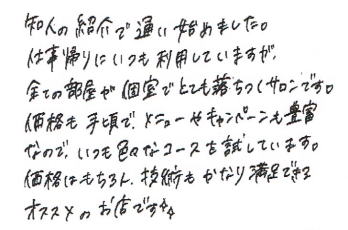 知人の紹介で通い始めました。
仕事帰りにいつも利用していますが、
全ての部屋が個室でとても落ちつくサロンです。
価格も手頃で、メニューやキャンペーンも豊富
なので、いつも色々なコースを試しています。
価格はもちろん、技術もかなり満足できる
オススメのお店です☆☆